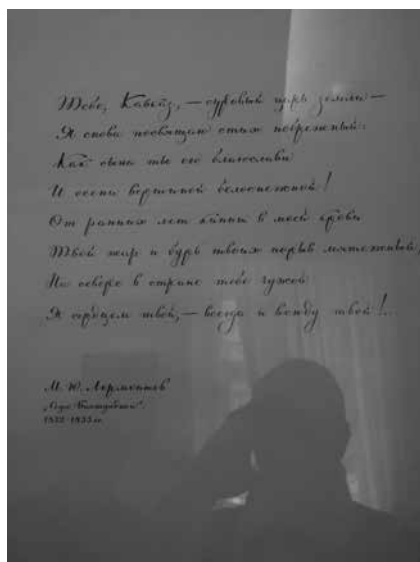 Тебе, Кавказ, — суровый царь земли —
Я снова посвящаю стих небрежный:
Как сына ты его благослови
И осени вершиной белоснежной!
От ранних лет кипит в моей крови
Твой жар и бурь твоих порыв мятежный;
На севере в стране тебе чужой
Я сердцем твой, — всегда и всюду твой!..
М. Ю. Лермонтов
„Аул Бастунджи“.
1832-1833 гг.